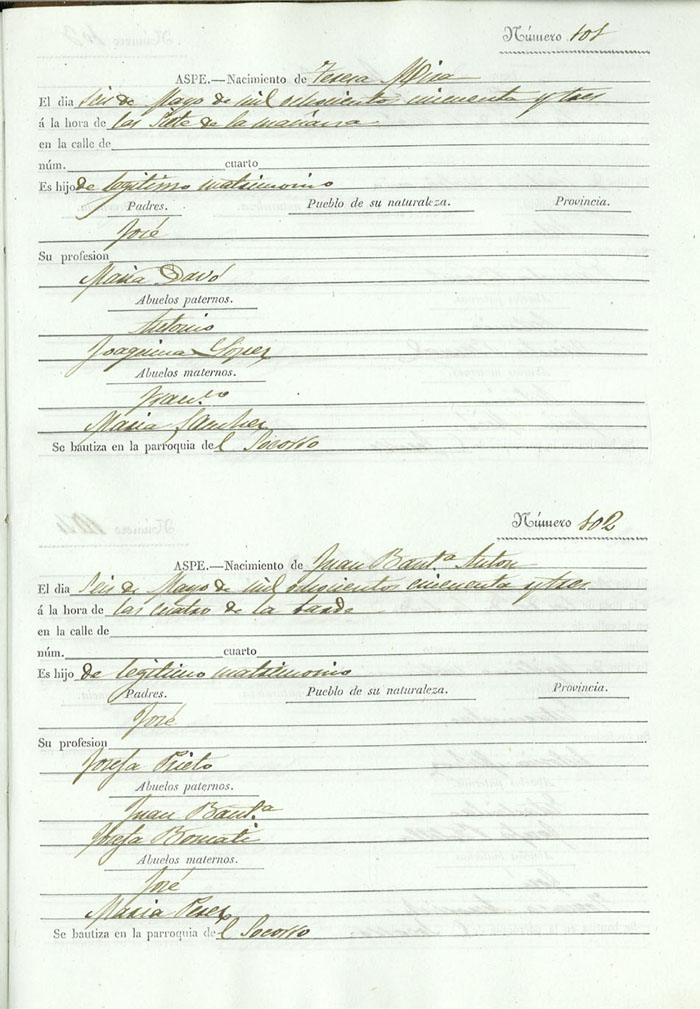 Número 101
ASPE.—Nacimiento de Teresa Mira
El dia Seis de Mayo de mil ochocientos cincuenta y tres
á la hora de las Siete de la mañana
en la calle de
núm. cuarto
Es hijo de legitimo matrimonio
Padres. Pueblo de su naturaleza. Provincia.
José
Su profesion
Maria Davó
Abuelos paternos.
Antonio
Joaquina Lopez
Abuelos maternos.
Fran.co
Maria Sanchez
Se bautiza en la parroquia del Socorro
Número 102
ASPE.—Nacimiento de Juan Baut.a Anton
El dia Seis de Mayo de mil ochocientos cincuenta y tres
á la hora de las cuatro de la tarde
en la calle de
núm. cuarto
Es hijo de legitimo matrimonio
Padres. Pueblo de su naturaleza. Provincia.
José
Su profesion
Josefa Prieto
Abuelos paternos.
Juan Baut.a
Josefa Bomati
Abuelos maternos.
José
Maria Perez
Se bautiza en la parroquia del Socorro